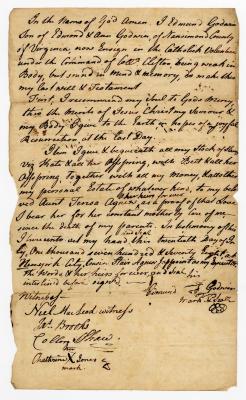 In the Name of God Amen. I Edmund Godwin
Son of Edmond & Ann Godwin, of Nansemond County
of Virginia, now Ensign in the Catholick Volunteers
under the Command of Coll. Clifton being weak in
Body, but sound in Mind & memory, Do make this
my last will & Testament
First, I recommend my Soul to Gods Mercy,
thro the Merits of Jesus Christ my Saviour &
my Body I give to the Earth in hopes of a joyful
Resurrection at the Last Day.
Then I give & bequeath all my Stock of
viz Kate & all her Offspring, with Bett & all her
Offspring Together with all my Money, & all other
my personal Estate of whatever kind, to my belov
ed Aunt Teresa Agnes, as a proof of that Love
I bear her for her constant motherly Care of me
since the death of my parents. In testimony of this
I hereunto set my hand this twentieth Day of Ju
ly One thousand seven hundred & seventy Eight at
the Words & her heirs for ever
interlined before signed
Edmund Godwin
Witnesses
Neil MacLeod witness
Jas. Brooks
Cathrine X Jones
mark